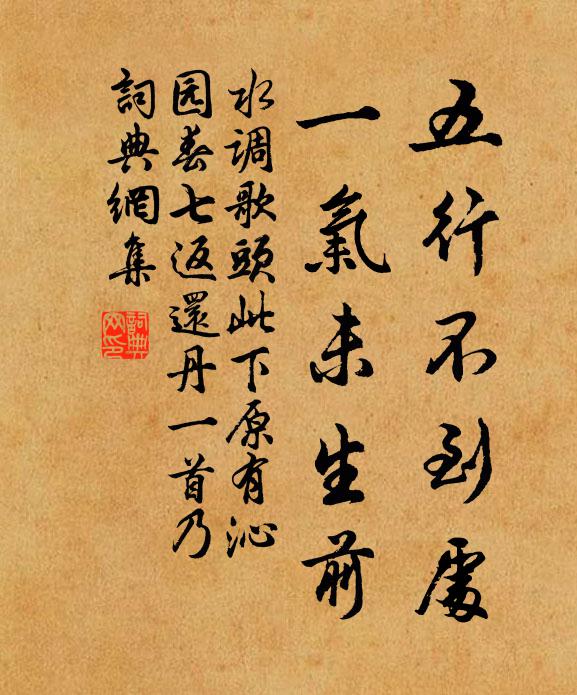 五行不到處
一氣未生前
水调歌頭此下原有沁
园春七返還丹一首乃
詞典網集
詞典網印